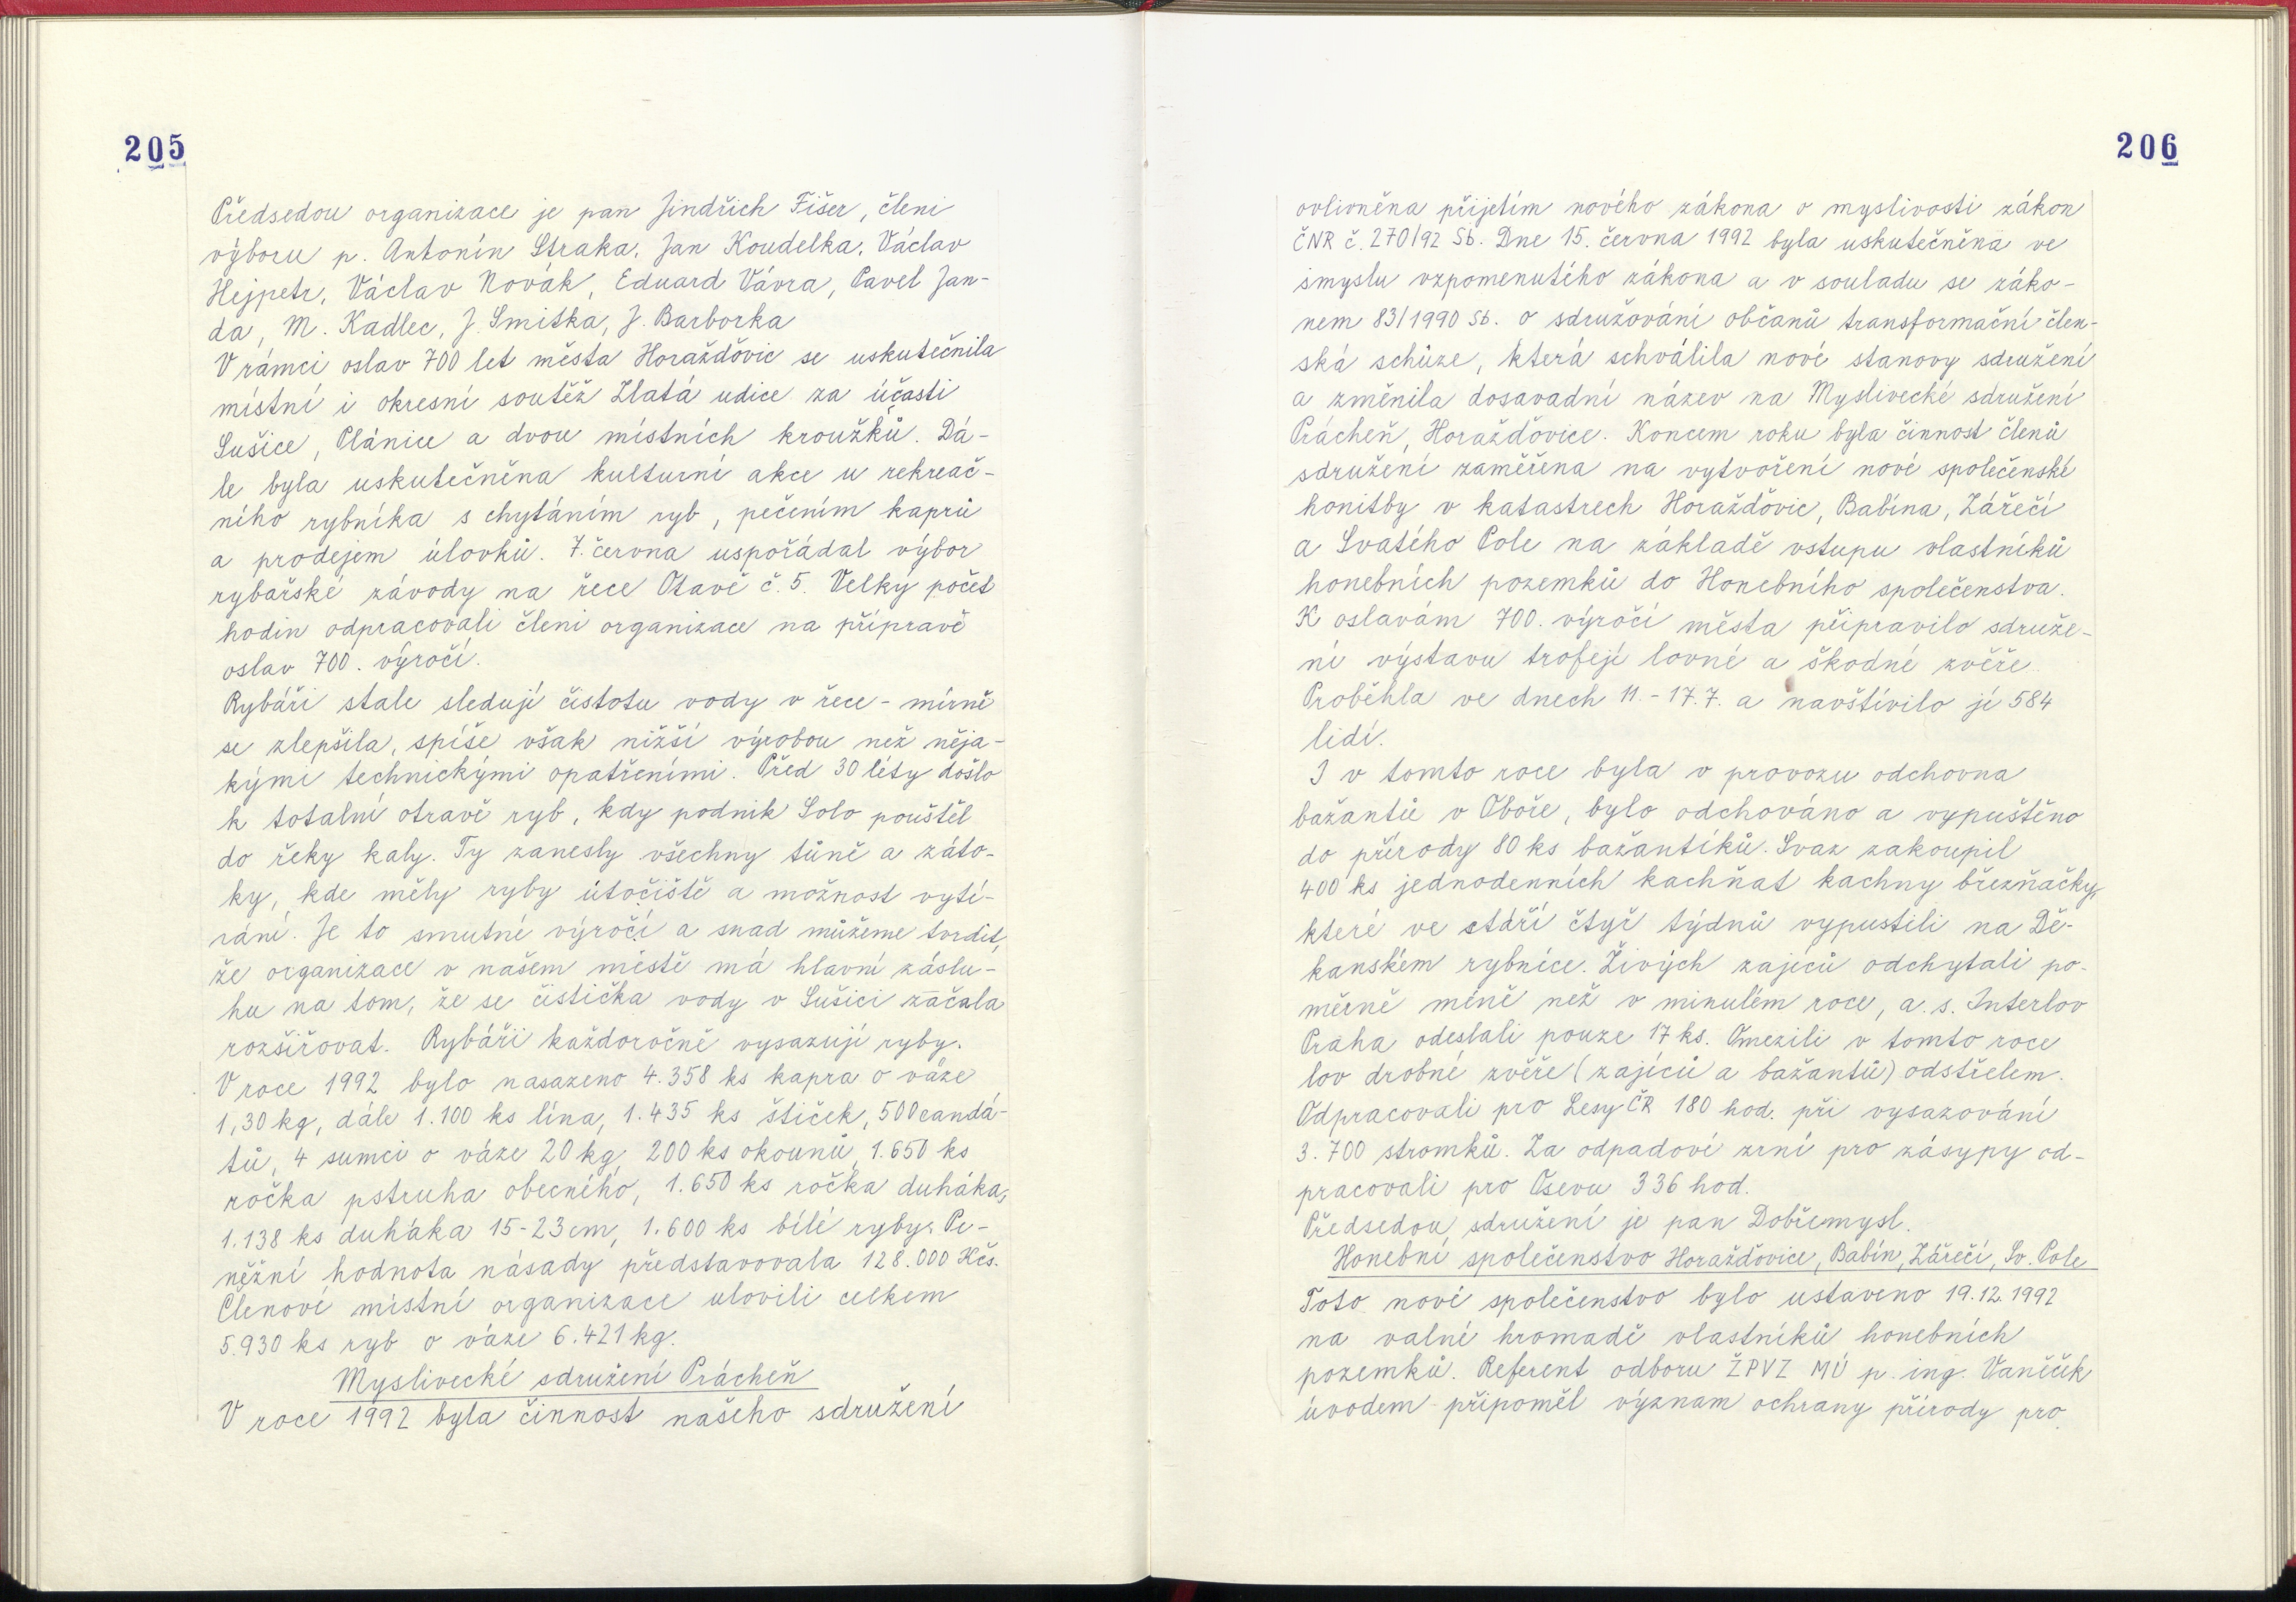 205
Předsedou organizace je pan Jindřich Fišer, členi
výboru p. Antonín Straka, Jan Koudelka, Václav
Hejpetr, Václav Novák, Eduard Vávra, Pavel Jan-
da, M. Kadlec, J. Smitka, J. Barborka
V rámci oslav 700 let města Horažďovic se uskutečnila
místní i okresní soutěž Zlatá udice za účasti
Sušice, Plánice a dvou místních kroužků. Dá-
le byla uskutečněna kulturní akce u rekreač-
ního rybníka s chytáním ryb, pečením kaprů
a prodejem úlovků. 7. června uspořádal výbor
rybářské závody na řece Otavě č. 5. Velký počet
hodin odpracovali členi organizace na přípravě
oslav 700. výročí.
Rybáři stale sledují čistotu vody v řece - mírně
se zlepšila, spíše však nižší výrobou než něja-
kými technickými opatřeními. Před 30 léty došlo
k totalní otravě ryb, kdy podnik Solo pouštěl
do řeky kaly. Ty zanesly všechny tůně a záto-
ky, kde měly ryby útočiště a možnost vytí-
rání. Je to smutné výročí a snad můžeme tvrdit,
že organizace v našem městě má hlavní záslu-
hu na tom, že se čistička vody v Sušici začala
rozšiřovat. Rybáři každoročně vysazují ryby.
V roce 1992 bylo nasazeno 4.358 ks kapra o váze
1,30 kg, dále 1.100 ks lína, 1.435 ks štiček, 500 candá-
tů, 4 sumci o váze 20 kg, 200 ks okounů, 1.650 ks
ročka pstruha obecného, 1.650 ks ročka duháka,
1.138 ks duháka 15-23 cm, 1.600 ks bílé ryby. Pe-
něžní hodnota násady představovala 128.000 Kčs.
Členové místní organizace ulovili celkem
5.930 ks ryb o váze 6.421 kg.
Myslivecké sdružení Prácheň
V roce 1992 byla činnost našeho sdružení
206
ovlivněna přijetím nového zákona o myslivosti zákon
ČNR č. 270/92 Sb. Dne 15. června 1992 byla uskutečněna ve
smyslu vzpomenutého zákona a v souladu se záko-
nem 83/1990 Sb. o sdružování občanů transformační člen-
ská schůze, která schválila nové stanovy sdružení
a změnila dosavadní název na Myslivecké sdružení
Prácheň, Horažďovice. Koncem roku byla činnost členů
sdružení zaměřena na vytvoření nové společenské
honitby v katastrech Horažďovic, Babína, Zářečí
a Svatého Pole na základě vstupu vlastníků
honebních pozemků do Honebního společenstva.
K oslavám 700. výročí města připravilo sdruže-
ní výstavu trofejí lovné a škodné zvěře.
Proběhla ve dnech 11.-17.7. a navštívilo jí 584
lidí.
I v tomto roce byla v provozu odchovna
bažantů v Oboře, bylo odchováno a vypuštěno
do přírody 80 ks bažantíků. Svaz zakoupil
400 ks jednodenních kachňat kachny březňačky,
které ve stáří čtyř týdnů vypustili na Dě-
kanském rybníce. Živých zajíců odchytali po-
měrně méně než v minulém roce, a.s. Interlov
Praha odeslali pouze 17 ks. Omezili v tomto roce
lov drobné zvěře (zajíců a bažantů) odstřelem.
Odpracovali pro Lesy ČR 180 hod. při vysazování
3.700 stromků. Za odpadové zrní pro zásypy od-
pracovali pro Osevu 336 hod.
Předsedou sdružení je pan Dobřemysl.
Honební společenstvo Horažďovice, Babín, Zářečí, Sv. Pole
Toto nové společenstvo bylo ustaveno 19.12.1992
na valné hromadě vlastníků honebních
pozemků. Referent odboru ŽPVZ MÚ p. ing. Vaněček
úvodem připoměl význam ochrany přírody pro